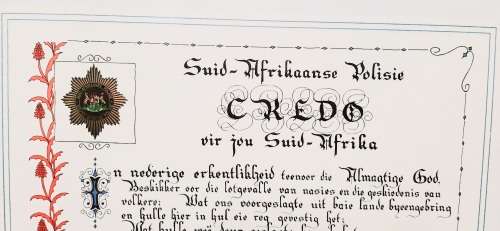 Suid-Afrikaanse Polisie
CREDO
vir jou Suid-Afrika
In nederige erkentlikheid teenoor die Almagtige God.
Beskikker oor die lotgevalle van nasies en die geskiedenis van
volkere: Wat ons voorgeslagte uit baie lande byeengebring
en hulle hier in hul eie reg gevestig het:
Wat hulle